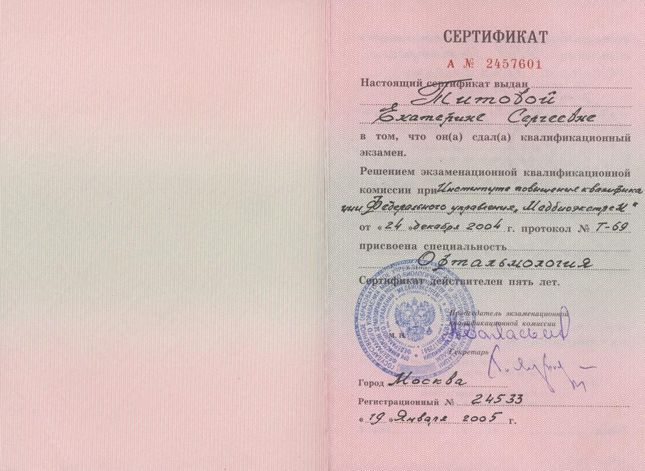 СЕРТИФИКАТ
А № 2457601
Настоящий сертификат выдан
Титовой
Екатерине Сергеевне
в том, что он(а) сдал(а) квалификационный
экзамен.
Решением экзаменационной квалификационной
комиссии при Институте повышения квалифика
ции Федерального управления „Медбиоэкстрем"
от «24» декабря 2004 г. протокол № Т-69
присвоена специальность
Офтальмология
Сертификат действителен пять лет.
Председатель экзаменационной
квалификационной комиссии
М. П.
Секретарь
Город Москва
Регистрационный № 24533
«19» Января 2005 г.